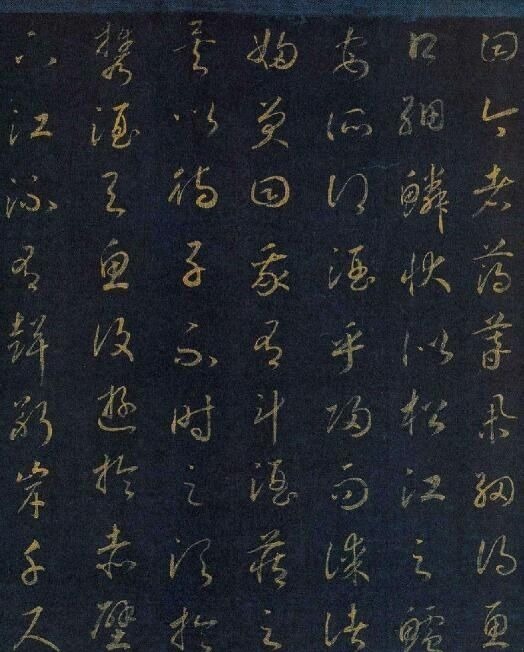 曰今者薄暮舉網得魚
口細鱗狀似松江之鱸
安所得酒乎歸而謀諸
婦曰我有斗酒藏之
矣以待子不時之須於
攜酒與魚復遊於赤壁
下江流有聲斷岸千尺